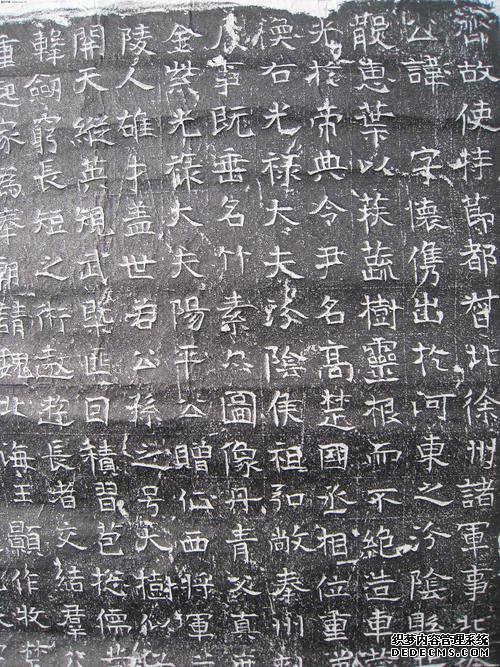 齊故使持節都督北徐州諸軍事北
公諱 字懷儁出於河東之汾陰縣
散惠葉以扶蔬樹靈根而不絕造車
光於帝典令尹名高楚國丞相位重
右光祿大夫汾陰侯祖弘敞秦州
事既垂名竹素亦圖像丹青父真
金紫光祿大夫陽平公贈征西將軍
陵人雄才盖世若公孫之号大樹似
開天縱英規武匪曰積習苞德
韓劒窮長短之術遨遊長者交結群
重起家為奉朝請魏北海王顥作牧
织梦内容管理系统
DEDECMS.COM